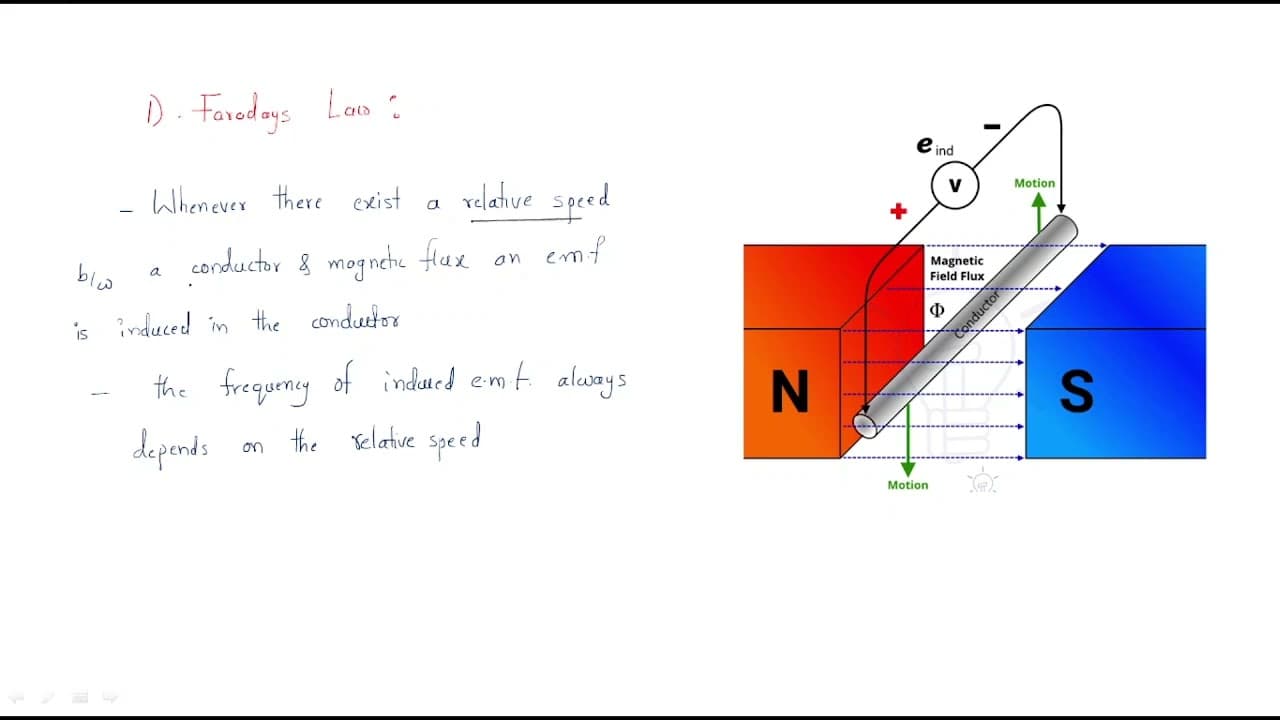 1). Faradays Law :
- Whenever there exist a relative speed
b/w a conductor & magnetic flux an e.m.f
is induced in the conductor
- the frequency of induced e.m.f. always
depends on the relative speed
e ind
-
V
+
Motion
Magnetic
Field Flux
Φ
Conductor
N
S
Motion